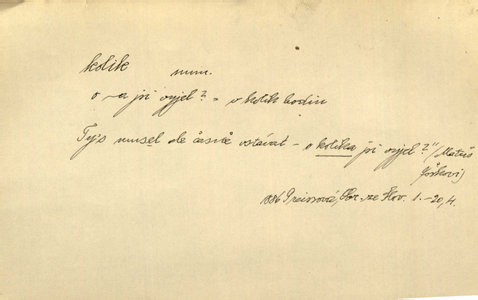 kolik num.
o ~a jsi vyjel? = v kolik hodin
Tys musel ale časně vstávat – o kolika jsi vyjel?" (Matúš
Joškovi)
1886 Preissová, Obr. ze Slov. 1. – 20,4.